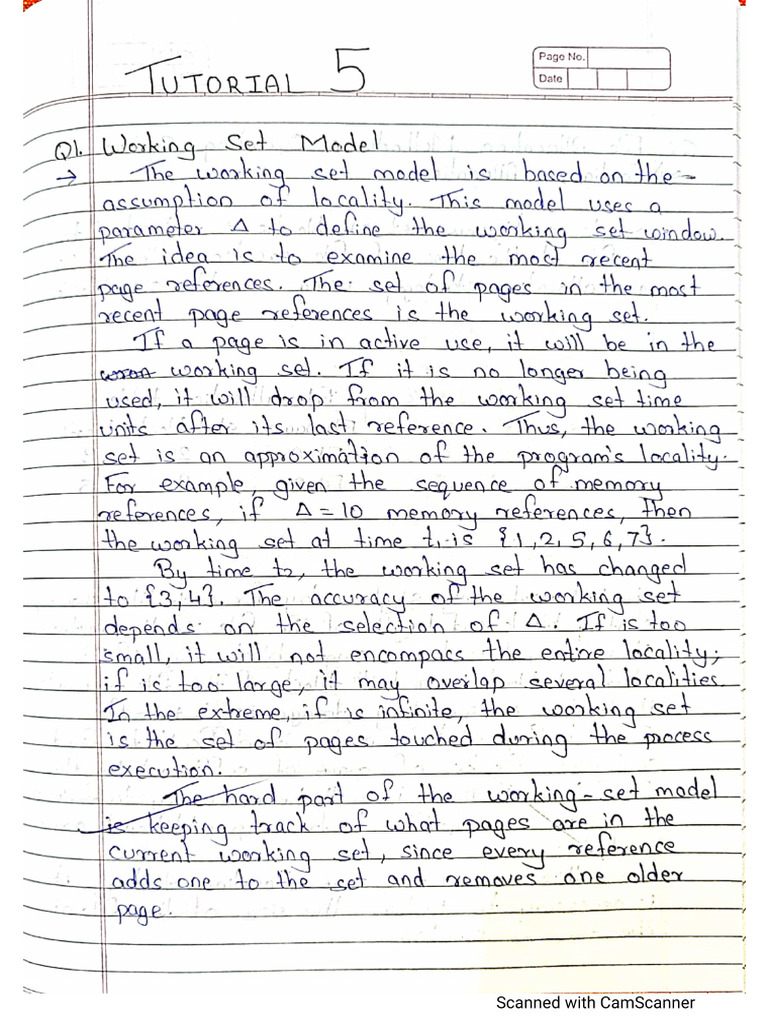 TUTORIAL 5
Page No.
Date
Q1. Working Set Model
→ The working set model is based on the
assumption of locality. This model uses a
parameter Δ to define the working set window.
The idea is to examine the most recent
page references. The set of pages in the most
recent page references is the working set.
If a page is in active use, it will be in the
working set. If it is no longer being
used, it will drop from the working set time
units after its last reference. Thus, the working
set is an approximation of the program's locality.
For example, given the sequence of memory
references, if Δ = 10 memory references, then
the working set at time t₁ is {1,2,5,6,7}.
By time t₂, the working set has changed
to {3,4}. The accuracy of the working set
depends on the selection of Δ. If is too
small, it will not encompass the entire locality;
if is too large, it may overlap several localities.
In the extreme, if is infinite, the working set
is the set of pages touched during the process
execution.
The hard part of the working-set model
is keeping track of what pages are in the
current working set, since every reference
adds one to the set and removes one older
page.
Scanned with CamScanner